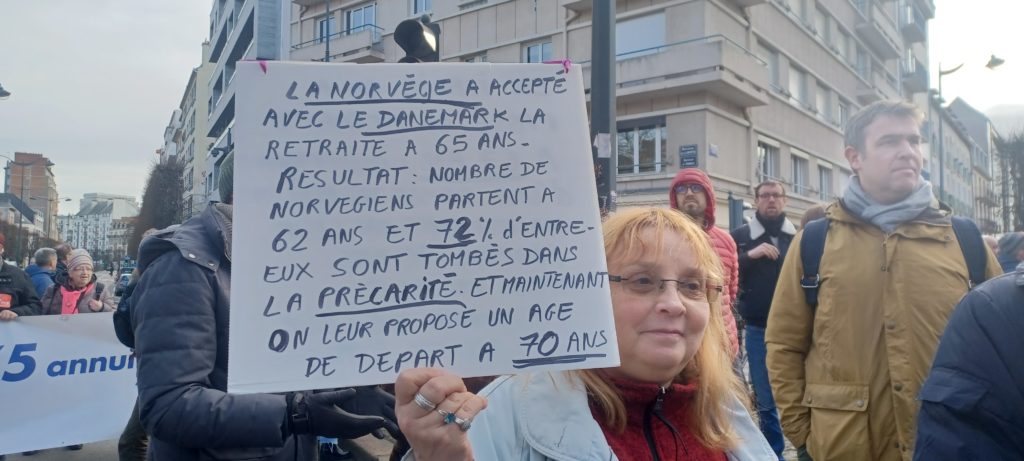 LA NORVÈGE A ACCEPTÉ
AVEC LE DANEMARK LA
RETRAITE A 65 ANS.
RESULTAT : NOMBRE DE
NORVEGIENS PARTENT A
62 ANS ET 72% D'ENTRE-
EUX SONT TOMBÈS DANS
LA PRÈCARITÈ. ET MAINTENANT
ON LEUR PROPOSE UN AGE
DE DEPART A 70 ANS
5 annui